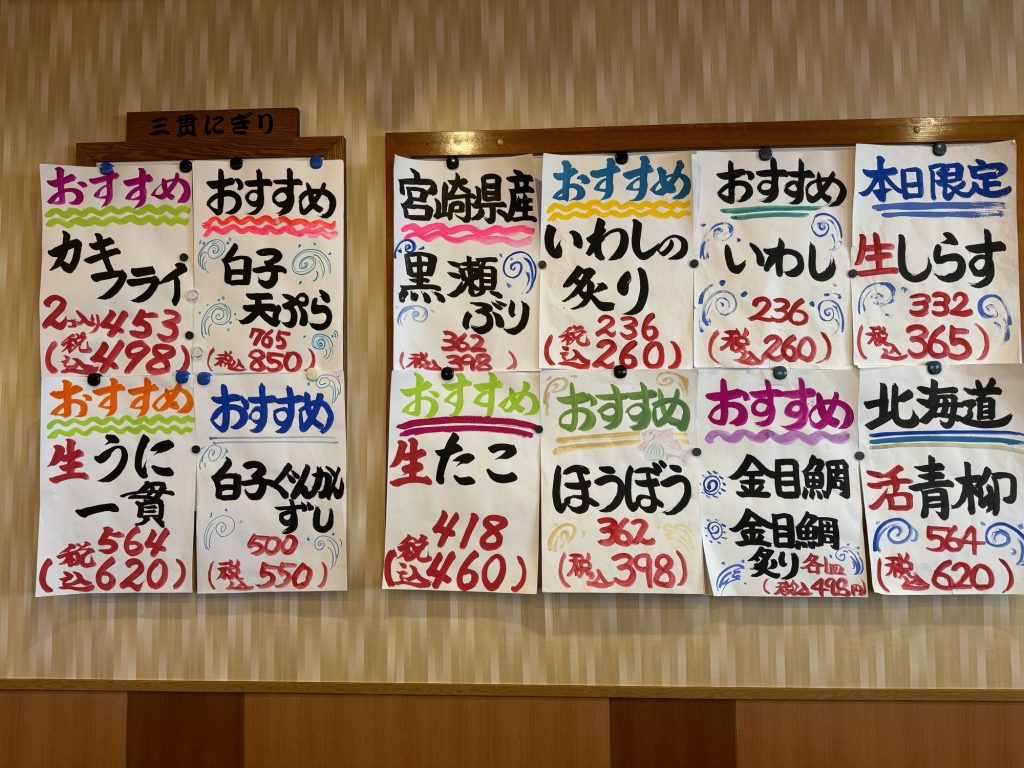 三貫にぎり
おすすめ
カキ
フライ
2コ入り453
(税込498)
おすすめ
白子
天ぷら
765
(税込850)
おすすめ
生うに
一貫
564
(税込620)
おすすめ
白子ぐんかん
ずし
500
(税込550)
宮崎県産
黒瀬
ぶり
362
(税込398)
おすすめ
いわしの
炙り
236
(税込260)
おすすめ
いわし
236
(税込260)
本日限定
生しらす
332
(税込365)
おすすめ
生たこ
418
(税込460)
おすすめ
ほうぼう
362
(税込398)
おすすめ
金目鯛
金目鯛
炙り各1皿
(税込498円)
北海道
活青柳
564
(税込620)